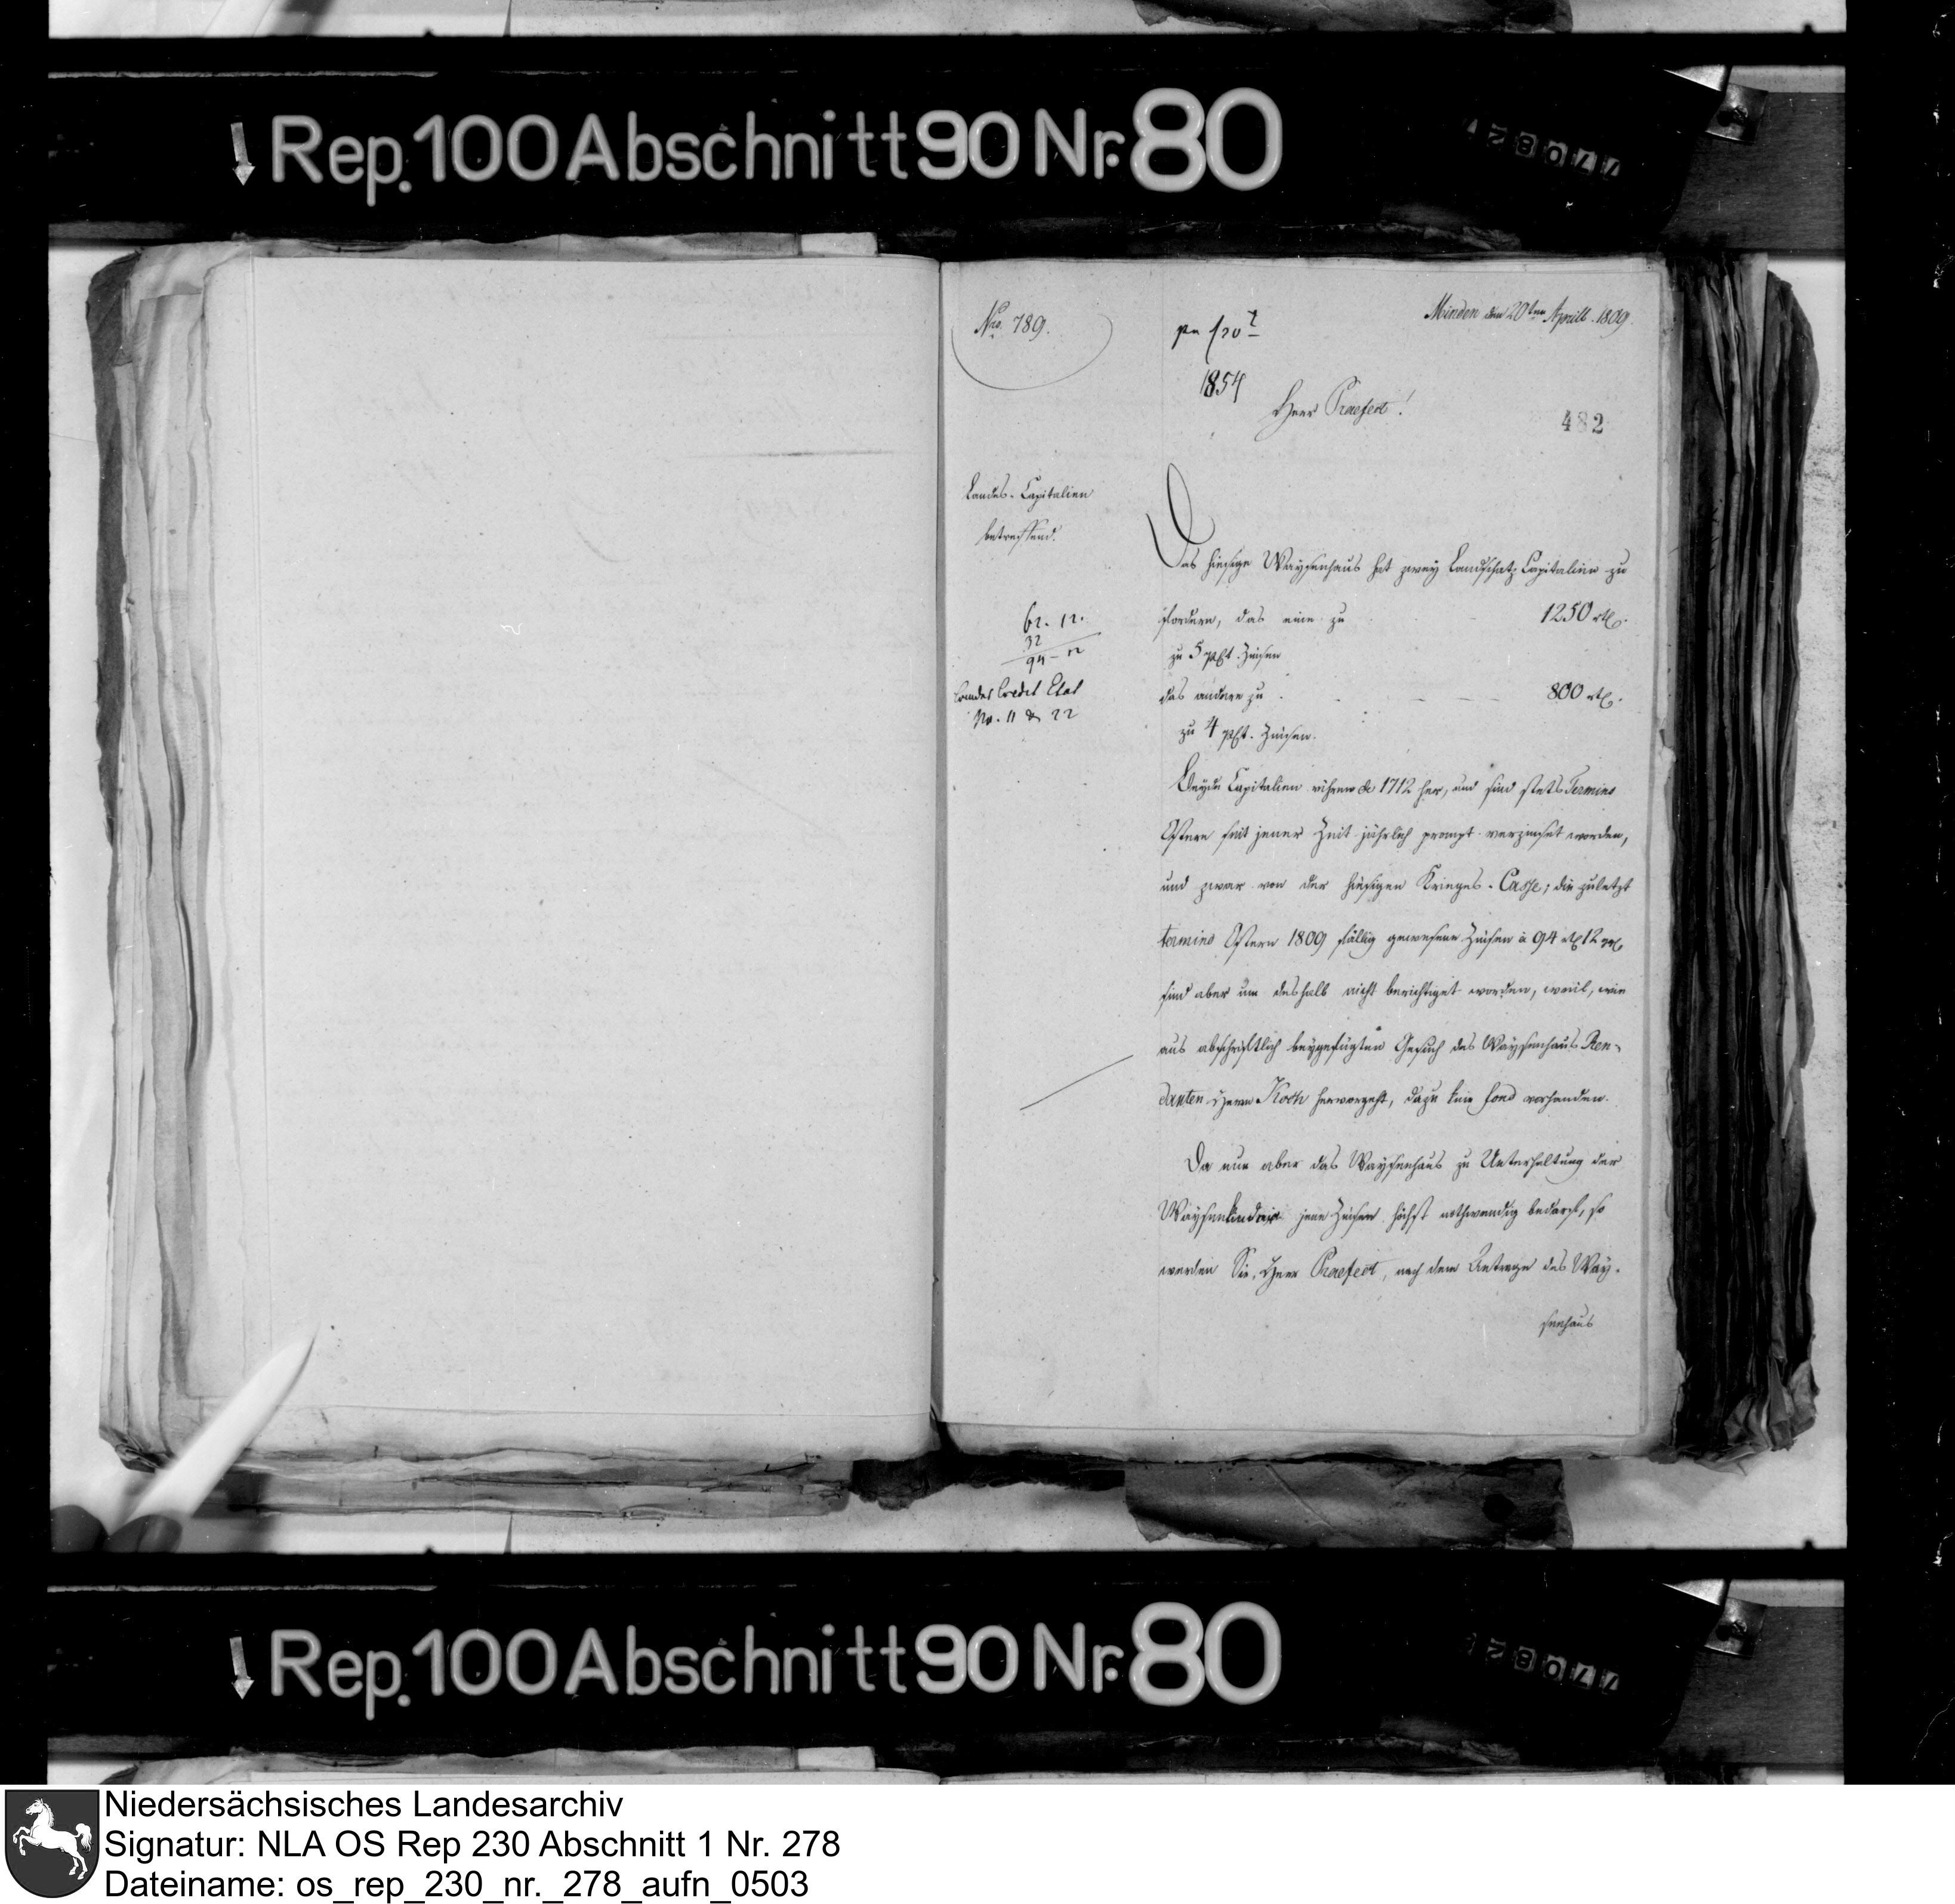 Rep. 100 Abschnitt 90 Nr. 80
No. 789.
Minden den 20ten Aprill 1809.
1854
Herr Praefect!
482
Landes-Capitalien
betreffend.
Das hiesige Waysenhaus hat zwey Landschatz Capitalien zu
62. 12.
32
94 - 12
Landes Credit Etat
No. 11 & 22
fordern, das eine zu 1250 rtl.
zu 5 pCt. Zinsen
das andere zu 800 rtl.
zu 4 pCt. Zinsen.
Beyde Capitalien rühren de 1712 her, und sind stets Termino
Ostern seit jener Zeit jährlich prompt verzinset worden,
und zwar von der hiesigen Krieges-Casse; die zuletzt
termino Ostern 1809 fällig gewesene Zinsen à 94 rtl 12 ggl
sind aber um deshalb nicht berichtiget worden, weil, wie
aus abschriftlich beygefügten Gesuch des Waysenhaus Ren-
danten Herrn Koch hervorgeht, dazu kein fond vorhanden.
Da nun aber das Waysenhaus zu Unterhaltung der
Waysenkinder jene Zinsen höchst nothwendig bedarf, so
werden Sie, Herr Praefect, nach dem Antrage des Way-
senhaus
Rep. 100 Abschnitt 90 Nr. 80
Niedersächsisches Landesarchiv
Signatur: NLA OS Rep 230 Abschnitt 1 Nr. 278
Dateiname: os_rep_230_nr._278_aufn_0503